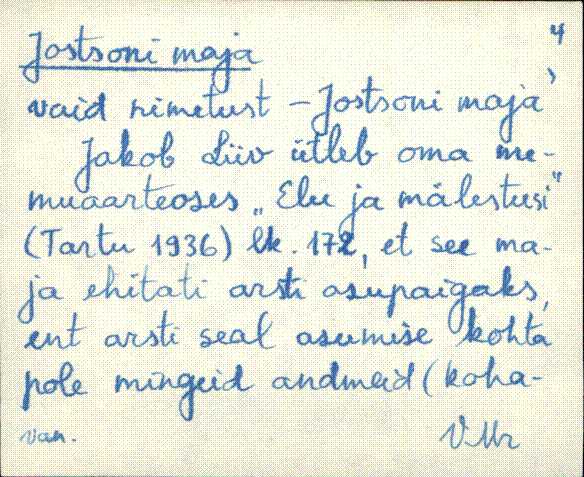 4
Jostsoni maja
vaid nimetust – Jostsoni maja,
Jakob Liiv ütleb oma me-
muaarteoses „Elu ja mälestusi"
(Tartu 1936) lk. 172, et see ma-
ja ehitati arsti asupaigaks,
ent arsti seal asumise kohta
pole mingeid andmeid (koha-
van. V.Mr